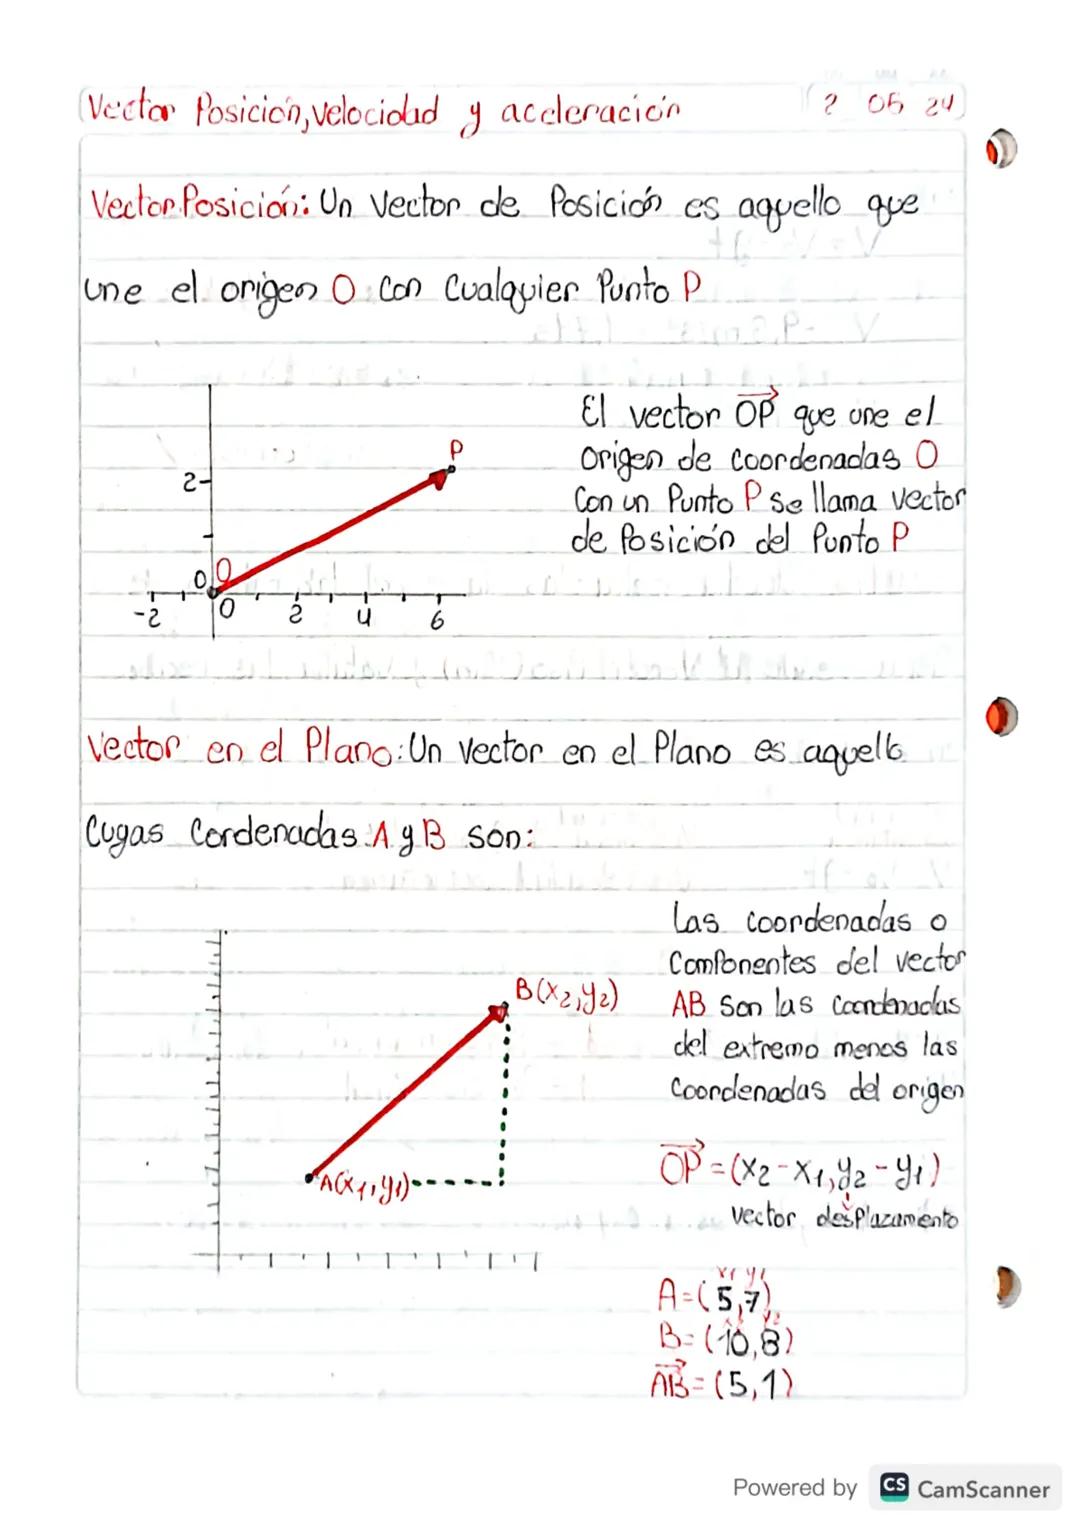 Vector Posición, velocidad y aceleración
2 05 24
Vector Posición: Un Vector de Posición es aquello que
une el origen O con Cualquier Punto P
El vector OP que une el
origen de coordenadas O
Con un Punto P se llama vector
de Posición del Punto P
P
2
0 O
-2 0 2 4 6
Vector en el Plano: Un Vector en el Plano es aquello
Cuyas Cordenadas A y B son:
Las coordenadas o
Componentes del vector
AB Son las coordenadas
del extremo menos las
Coordenadas del origen
B(x₂,y₂)
A(x₁,y₁)
OP = (x₂-x₁,y₂-y₁)
vector desplazamiento
x₁ y₁
A=(5,7)
y₂
B=(10,8)
AB=(5,1)
Powered by CS CamScanner